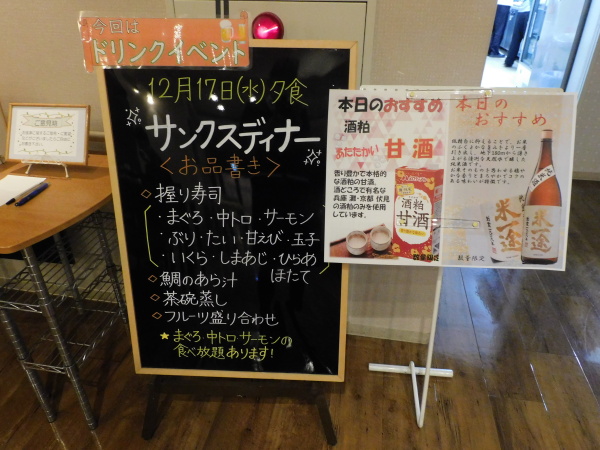 今回は
ドリンクイベント
12月17日(水)夕食
サンクスディナー
<お品書き>
◇握り寿司
・まぐろ・中トロ・サーモン
ぶり・たい・甘えび・玉子
・いくら・しまあじ・ひらめ
ほたて
◇鯛のあら汁
◇茶碗蒸し
◇フルーツ盛り合わせ
★まぐろ・中トロ・サーモンの
食べ放題あります!
本日のおすすめ
酒粕
あたたかい 甘酒
香り豊かで本格的
な酒粕の甘酒。
酒どころで有名な
兵庫 灘・京都 伏見
の酒粕のみを使用
しています。
酒粕
甘酒
数量限定
本日の
おすすめ
米一途
米一途
数量限定